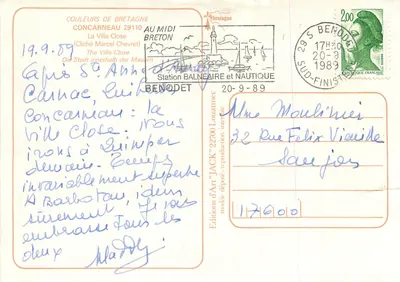 COULEURS DE BRETAGNE
CONCARNEAU 29110
La Ville Close
(Cliché Marcel Chevret)
The Ville Close
Die Stadt innerhalb der Mauern
19.9.89
après Ste Anne
Carnac,
Concarneau : la
Ville Close. Nous
irons à Quimper
demain. Temps
invariablement superbe
A Barbotan, idem
sûrement. Je vous
embrasse tous les
deux
Maddy
AU MIDI
BRETON
Station BALNEAIRE et NAUTIQUE
BENODET 20-9-89
29 S BENODET
17H30
20-9
1989
SUD-FINISTERE
2,00
Editions d'Art "JACK"
Mme Moulinier
32 Rue Felix Viaude
Saujon
17600